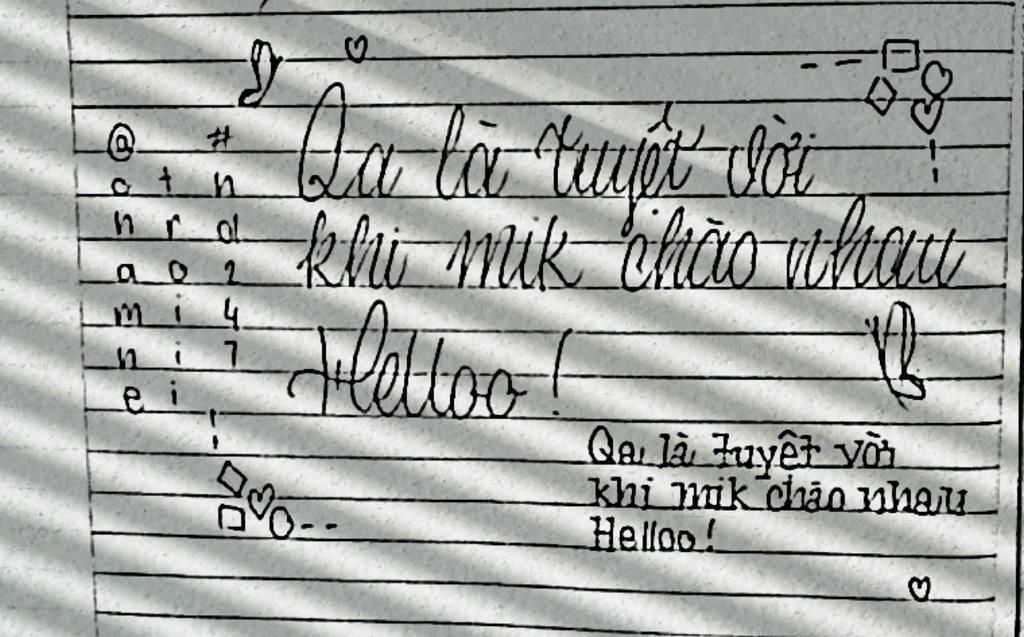 @
a n a m n e
t r o i i i
#
n d 2 4 7
Qa là tuyệt vời
khi mik chào nhau
Helloo!
Qa là tuyệt vời
khi mik chào nhau
Helloo!